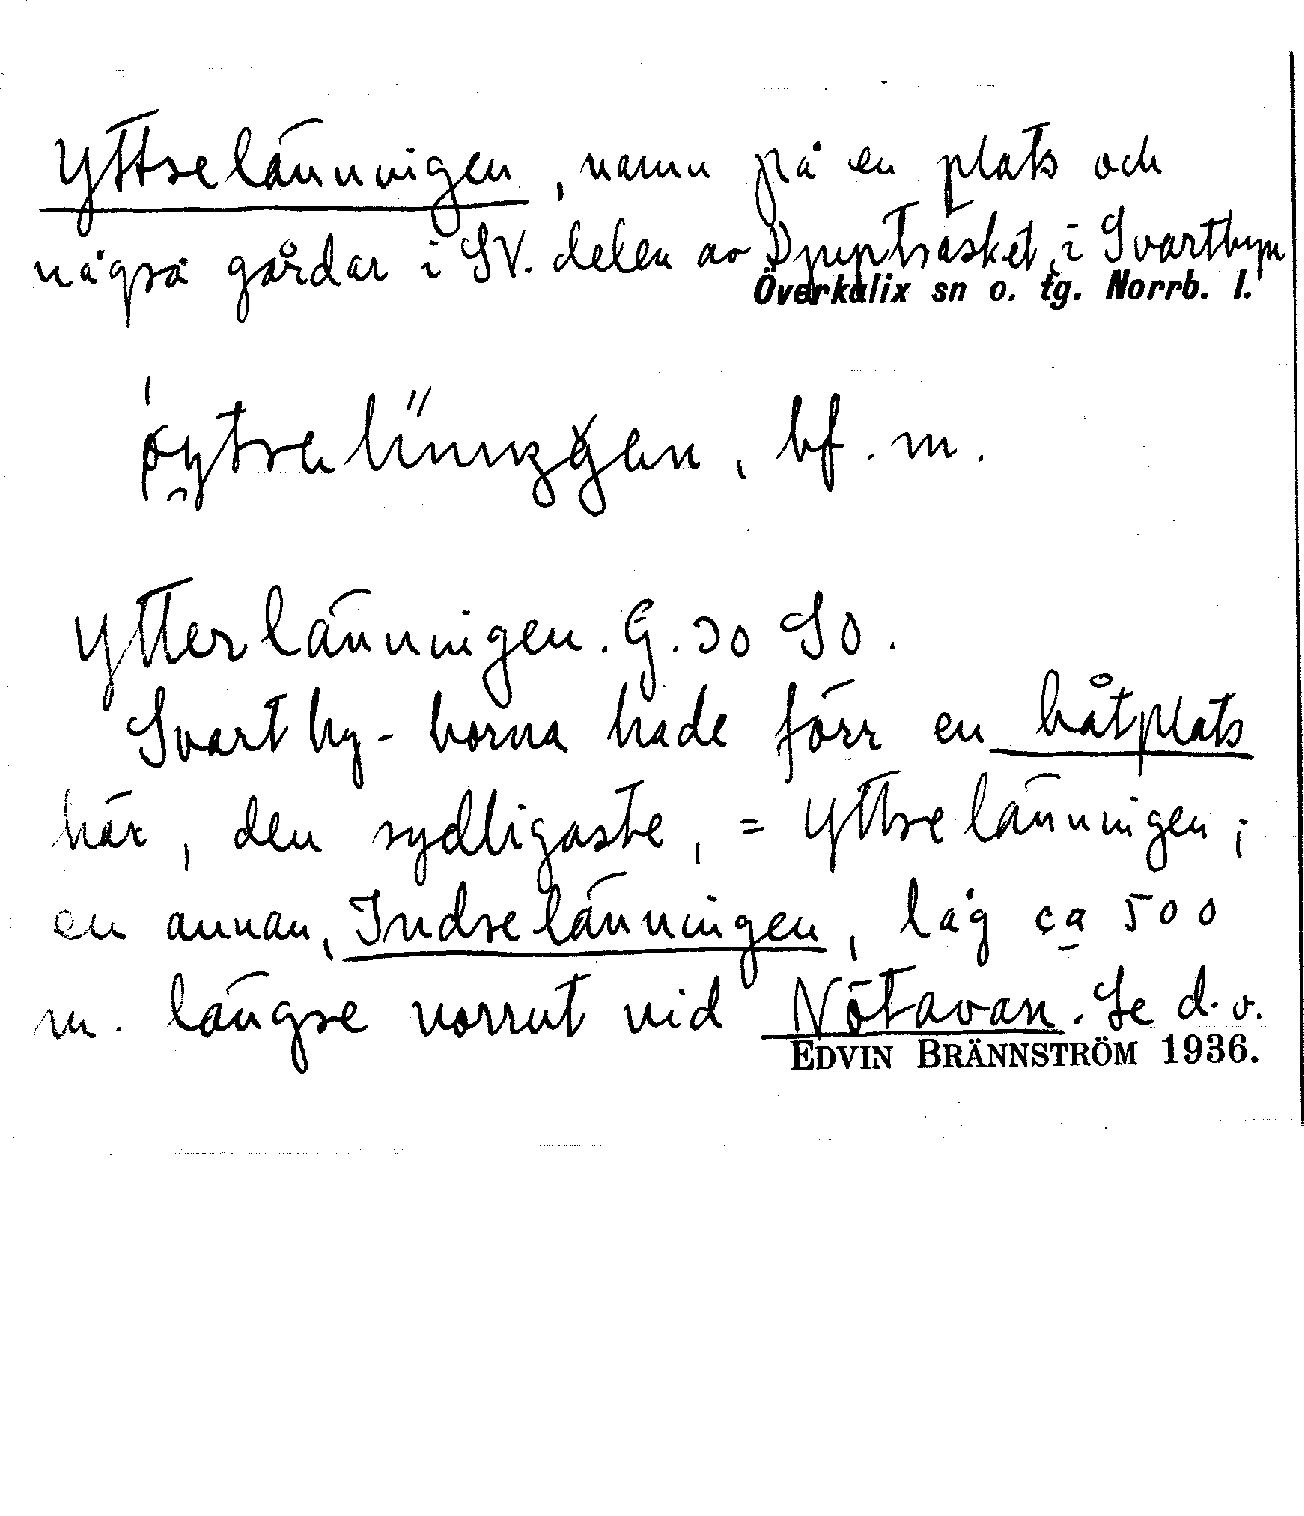 Yttrelänningen, namn på en plats och
några gårdar i SV. delen av Djupträsket i Svartbyn
Överkalix sn o. tg. Norrb. l.
bf. m.
Ytterlänningen. G. 30 SO.
Svartby-borna hade förr en båtplats
här, den sydligaste, = Yttrelänningen;
en annan, Indrelänningen, låg ca 500
m. längre norrut vid Nötavan. Se d.o.
EDVIN BRÄNNSTRÖM 1936.